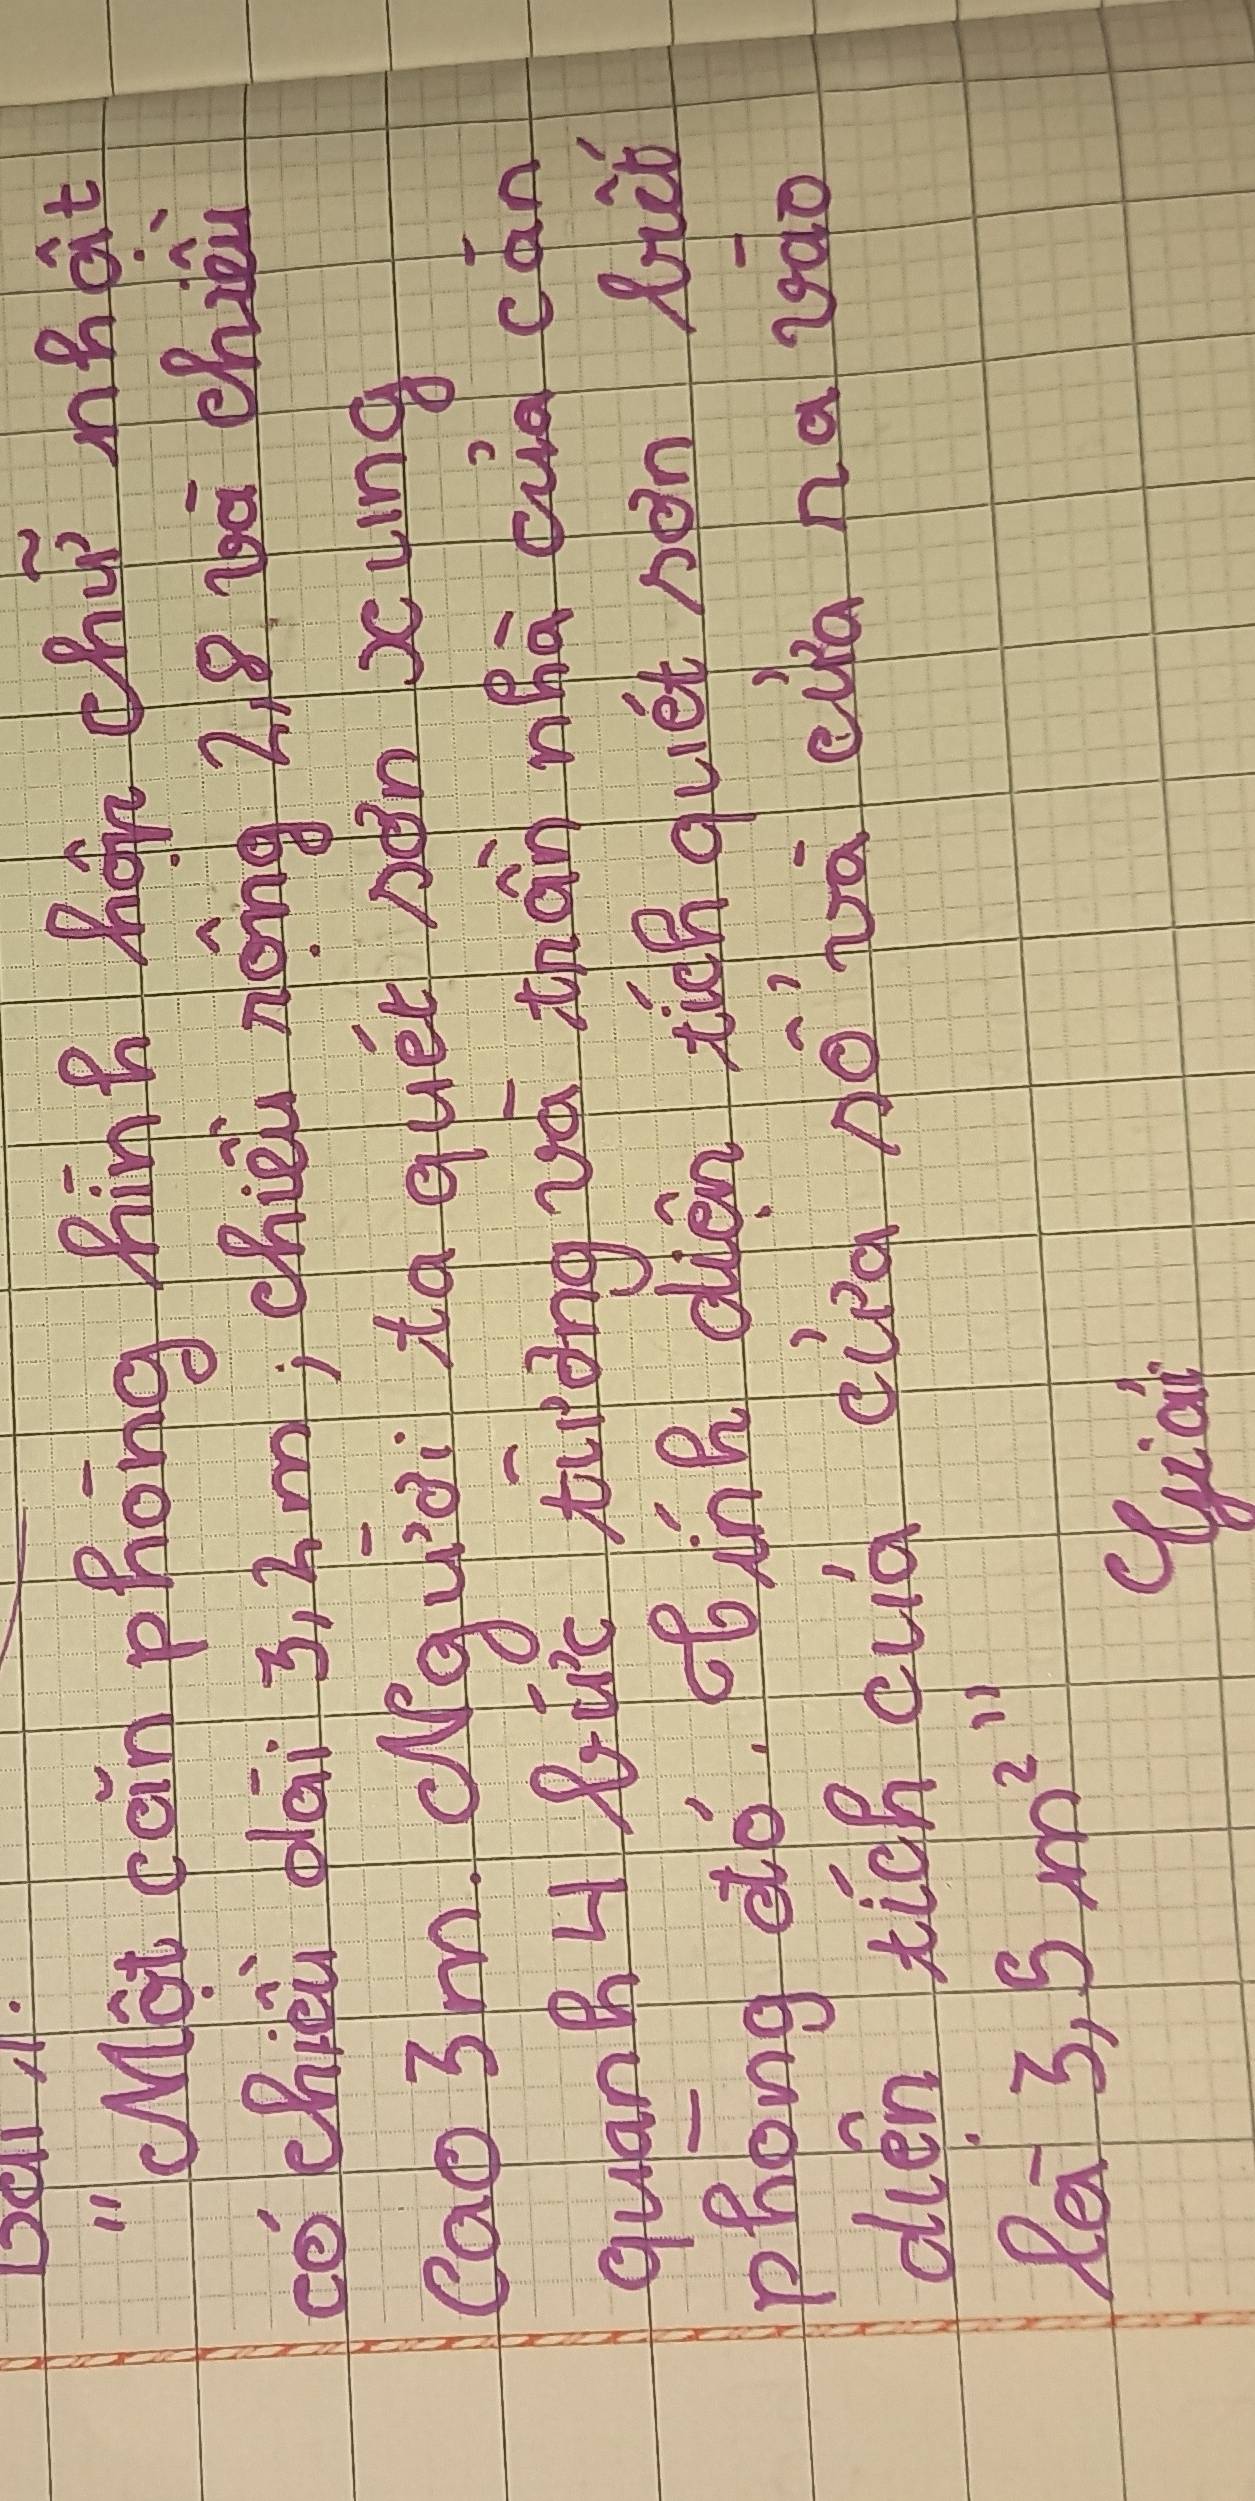 Bài 1:
"Một căn phòng hình hộp chữ nhật
có chiều dài 3,2m; chiều rộng 2,8 và chiều
cao 3m. Người ta quét sơn xung
quanh 4 bức tường và trần nhà của căn
phòng đó. Tính diện tích quét sơn biết
diện tích của cửa sổ và cửa ra vào
là 3,5 m²"
Giải